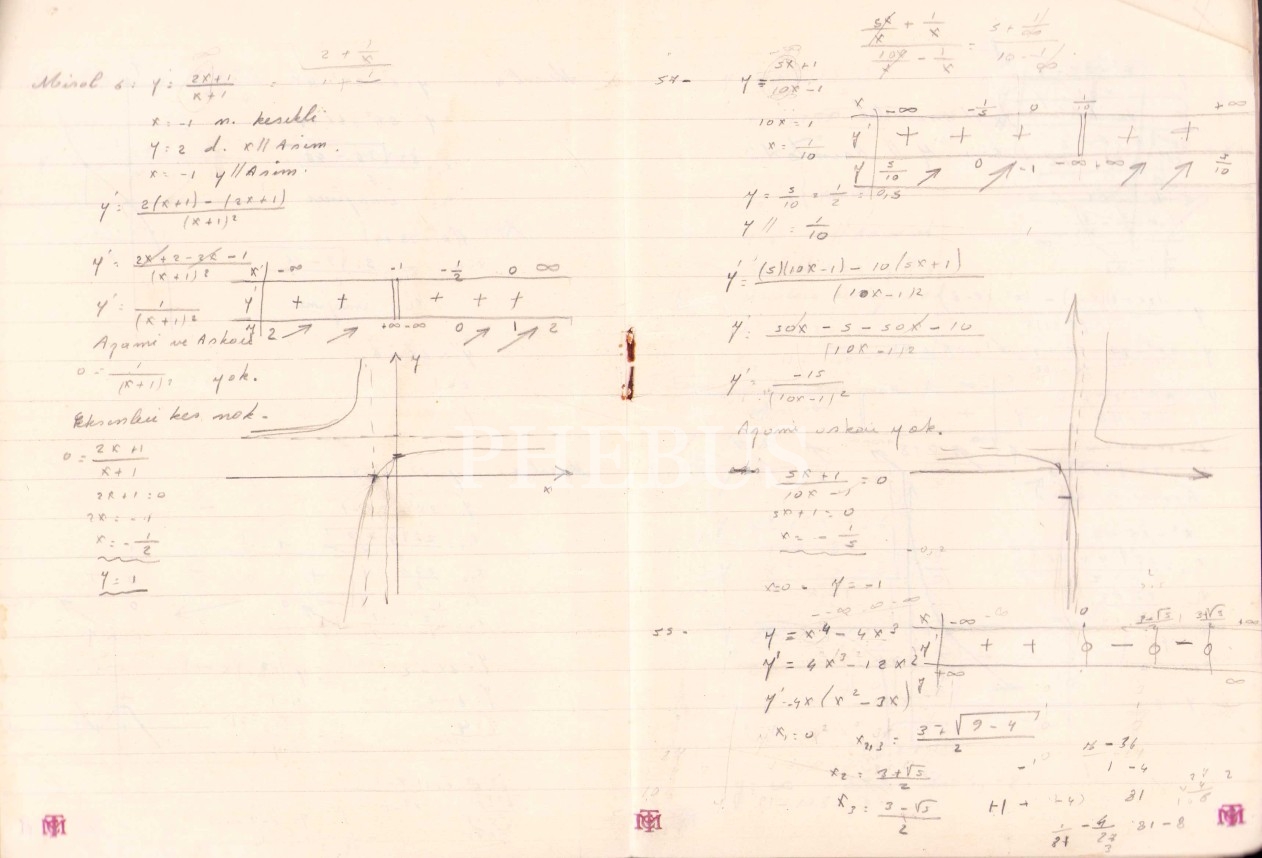 Misal 6: y = 2x+1 / x+1 = 2 + 1/x / 1 + 1/x
x = -1 n. kesikli
y = 2 d. x // Asim.
x = -1 y // Asim.
y' = 2(x+1) - (2x+1) / (x+1)2
y' = 2x + 2 - 2x - 1 / (x+1)2
y' = 1 / (x+1)2
x -∞ -1 -1/2 0 ∞
y' + + + + +
y 2 ↗ ↗ +∞ -∞ 0 ↗ 1 ↗ 2
Azami ve Askari
0 = 1 / (x+1)2 yok.
y
x
Eksenleri kes nok.
0 = 2x+1 / x+1
2x+1 = 0
2x = -1
x = -1/2
y = 1
5x/x + 1/x / 10x/x - 1/x = 5 + 1/∞ / 10 - 1/∞
57- y = 5x+1 / 10x-1
10x = 1
x = 1/10
x -∞ -1/5 0 1/10 +∞
y' + + + + +
y 5/10 ↗ 0 ↗ -1 -∞ +∞ ↗ ↗ 5/10
y = 5/10 = 1/2 = 0,5
y // = 1/10
y' = (5)(10x-1) - 10(5x+1) / (10x-1)2
y' = 50x - 5 - 50x - 10 / (10x-1)2
y' = -15 / (10x-1)2
Azami askari yok.
5x+1 / 10x-1 = 0
5x+1 = 0
x = - 1/5
-0,2
x=0 y = -1
y = x4 - 4x3
y' = 4x3 - 12x2
y' = 4x (x2 - 3x)
x -∞ 0 3-√5 3+√5 +∞
y' + + 0 - 0 - 0
y +∞ ∞
x1 = 0 x2,3 = 3 ∓ √9-4 / 2
x2 = 3+√5 / 2
x3 = 3-√5 / 2
16 - 36
1 - 4
81
81 - 8
PHEBUS